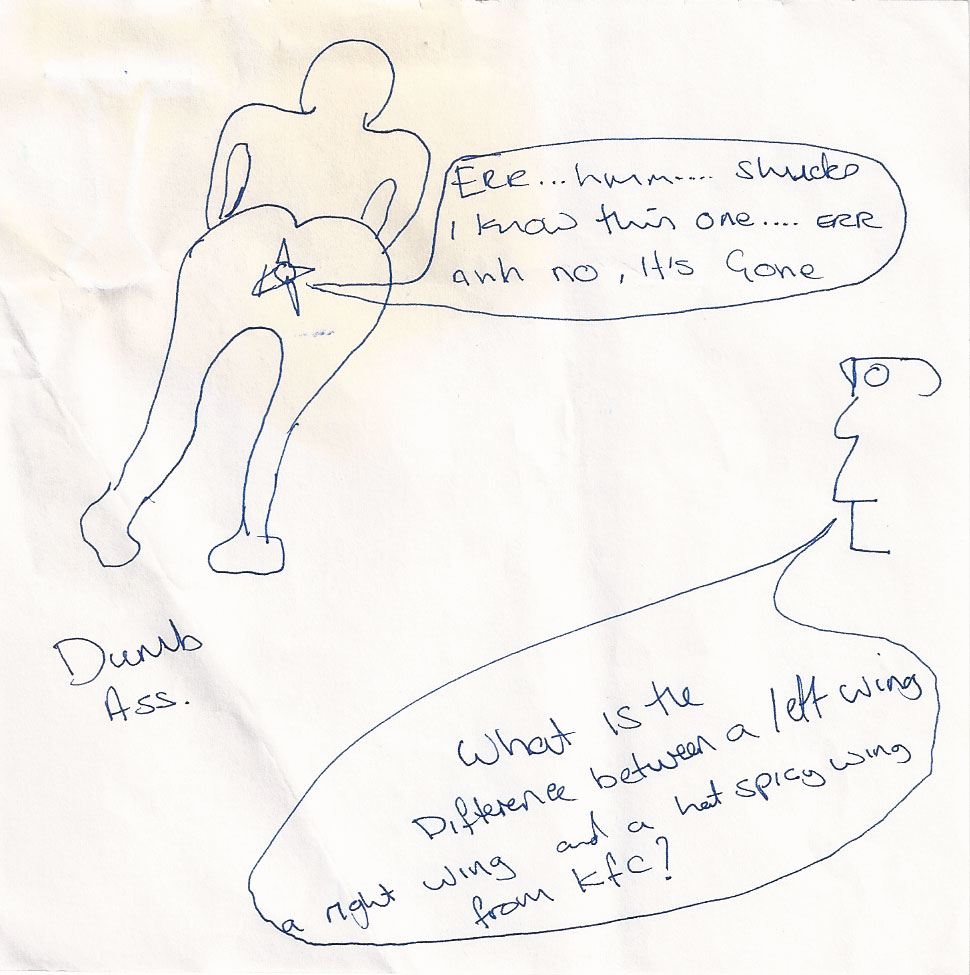 ERR...hmm.... shucks
I know this one.... ERR
ahh no, It's Gone
Dumb
Ass.
What is the
Difference between a left wing
a right wing and a hot spicy wing
from KFC?